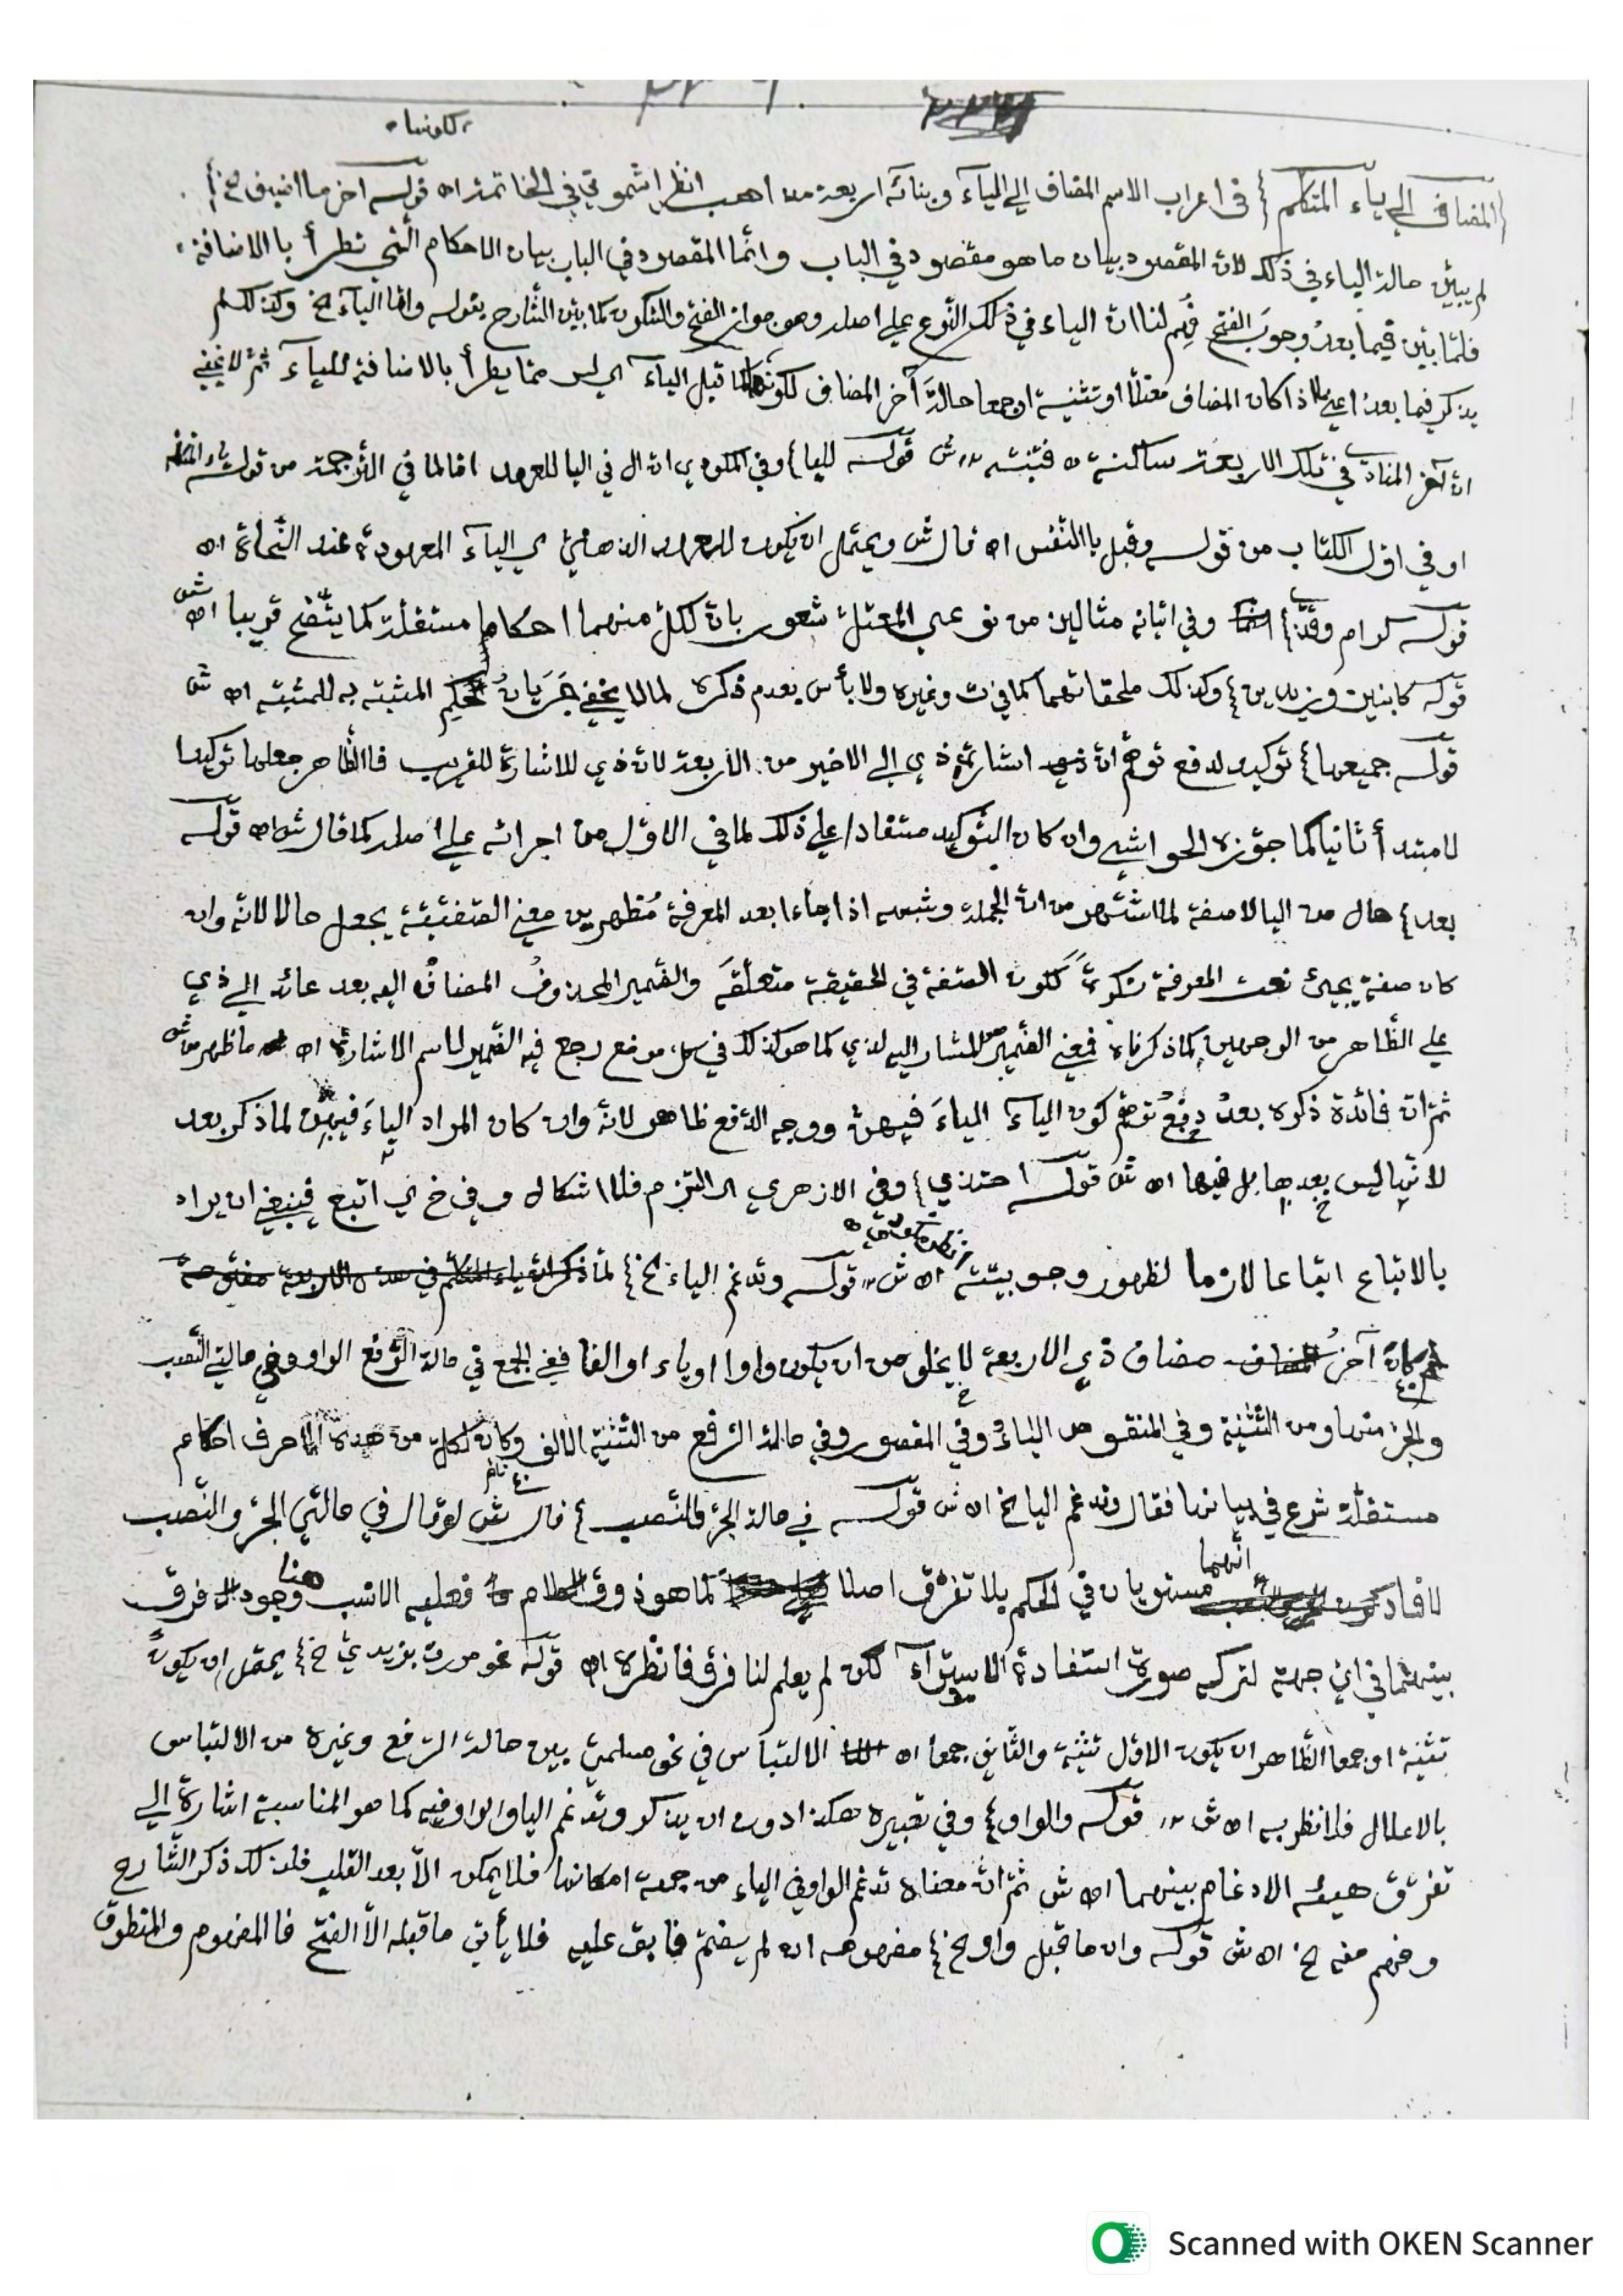 المضاف إلى ياء المتكلم } في اعراب الاسم المضاف إلى الياء وبنائه اربعة مذاهب انظر اشموني في الخاتمة اه قوله اخر ما اضيف خ
لم يبيّن حالة الياء في ذلك لان المقصود بيان ما هو مقصود في الباب وانّما المقصود في الباب بيان الاحكام الّتي تطرأ بالاضافة
فلمّا بيّن فيما بعدُ وجوبَ الفتح فُهِم لنا انّ الياء في ذلك النّوع على اصله وهو جواز الفتح والسّكون كما بيّن الشّارح بقوله وامّا الياء خ وكذلك لم
يذكر فيما بعدُ اذا كان المضاف معتلًّا او تثنية او جمعا حالةَ آخر المضاف ما قبل الياء اي ليس ممّا يطرأ بالاضافة للياء ثمّ لا يخفى
انّ آخر المضاف في تلك الاربعة ساكنة فتنبّه ش قوله لليا} وفي المكودي ان ال في اليا للعهد امّا لما في التّرجمة من قوله ياء
او في اوّل الكتاب من قوله وقبل يا النّفس اه قال ش ويحتمل ان يكون للعهد الذهنيّ اي الياء المعهودة عند النّحاة اه
قوله كرام وقذى} وفي اتيانه مثالين من نوعي المعتلّ شعور بانّ لكلّ منهما احكاما مستقلّة كما يتّضح قريبا اه ش
قوله كابنين وزيدين} وكذلك ملحقاتهما كما في ت وغيره ولا بأس بعدم ذكره لما لا يخفى جَرَيانُ حكم المشبّه به للمشبّه اه ش
قوله جميعها} توكيد لدفع توهّم انّ اشارة ذي إلى الاخير من الاربعة لانّ ذي للاشارة للقريب فالظّاهر جعلها توكيدا
لا مبتدأ ثانيا كما جوّزه الحواشي وان كان التّوكيد مستفادا على ذلك لما في الاوّل من اجرائه على اصله كما قال ش اه قوله
بعد} حال من اليا لا صفة لما اشتهر من انّ الجملة وشبهه اذا جاءا بعد المعرفة مُظهرين معنى الصّفتيّة يجعل حالا لانّه وان
كان صفة يجيئ نعت المعرفة نكرةً ككون الصّفة في الحقيقة متعلّقَه والضّمير المحذوفُ المضافُ اليه بعد عائد الى ذي
على الظّاهر من الوجهين كما ذكرناه فمعنى الضّمير للمشار اليه لذي كما هو كذلك في كلّ موضع رجع فيه الضّمير لاسم الاشارة اه ما ظهر من ش
ثمّ انّ فائدة ذكره بعدُ دفعُ توهّم كون الياء الياءَ فيهنّ ووجه الدّفع ظاهر لانّه وان كان المراد الياءَ فيهنّ لما ذكر بعد
لانّها ليس بعدها بل فيها اه ش قوله احتذي} وفي الازهري اي التزم فلا اشكال وفي خ اي اتبع فينبغي ان يراد
بالاتباع اتباعا لازما لظهور وجوبيّته اه ش قوله وتدغم الياء خ} لما ذكر انّ ياء المتكلّم في هذه الاربعة مفتوحة
آخرُ مضاف ذي الاربعة لا يخلو من ان يكون واوا او ياء او الفا ففي الجمع في حالة الرّفع الواو وفي حالتي النّصب
والجرّ منها ومن التّثنية وفي المنقوص الياءُ وفي المقصور وفي حالة الرّفع من التّثنية الالف وكان لكلّ من هذه الاحرف احكام
مستقلّة شرع في بيانها فقال وتدغم اليا خ اه ش قوله في حالة الجرّ والنّصب} قال ش لو قال في حالتي الجرّ والنّصب
لافاد انّهما مستويان في الحكم بلا تفرّق اصلا كما هو ذوق الكلام فعليه الانسب هنا وجود فرق
بينهما في ايّ جهة لتركه صورة استفادة الاستواء لكن لم يعلم لنا فرق فانظره اه قوله نحو مررت بزيديّ خ} يحتمل ان يكون
تثنية او جمعا الظّاهر ان يكون الاوّل تثنية والثّاني جمعا اه الالتباس في نحو مسلميّ بين حالة الرّفع وغيره من الالتباس
بالاعلال فلا نظر به اه ش قوله والواو} وفي تعبيره هكذا دون ان يذكر وتدغم اليا والواو فيه كما هو المناسبة اشارة الى
تفرّق هيئة الادغام بينهما اه ش ثمّ انّ معناه تدغم الواو في الياء من جهة امكانها فلا يمكن الّا بعد القلب فلذلك ذكر الشّارح
وفهم منه خ اه ش قوله وان ما قبل واو خ} مفهومه ان لم يضمّ فابق عليه فلا يأتي ما قبله الّا الفتح فالمفهوم والمنطوق
Scanned with OKEN Scanner